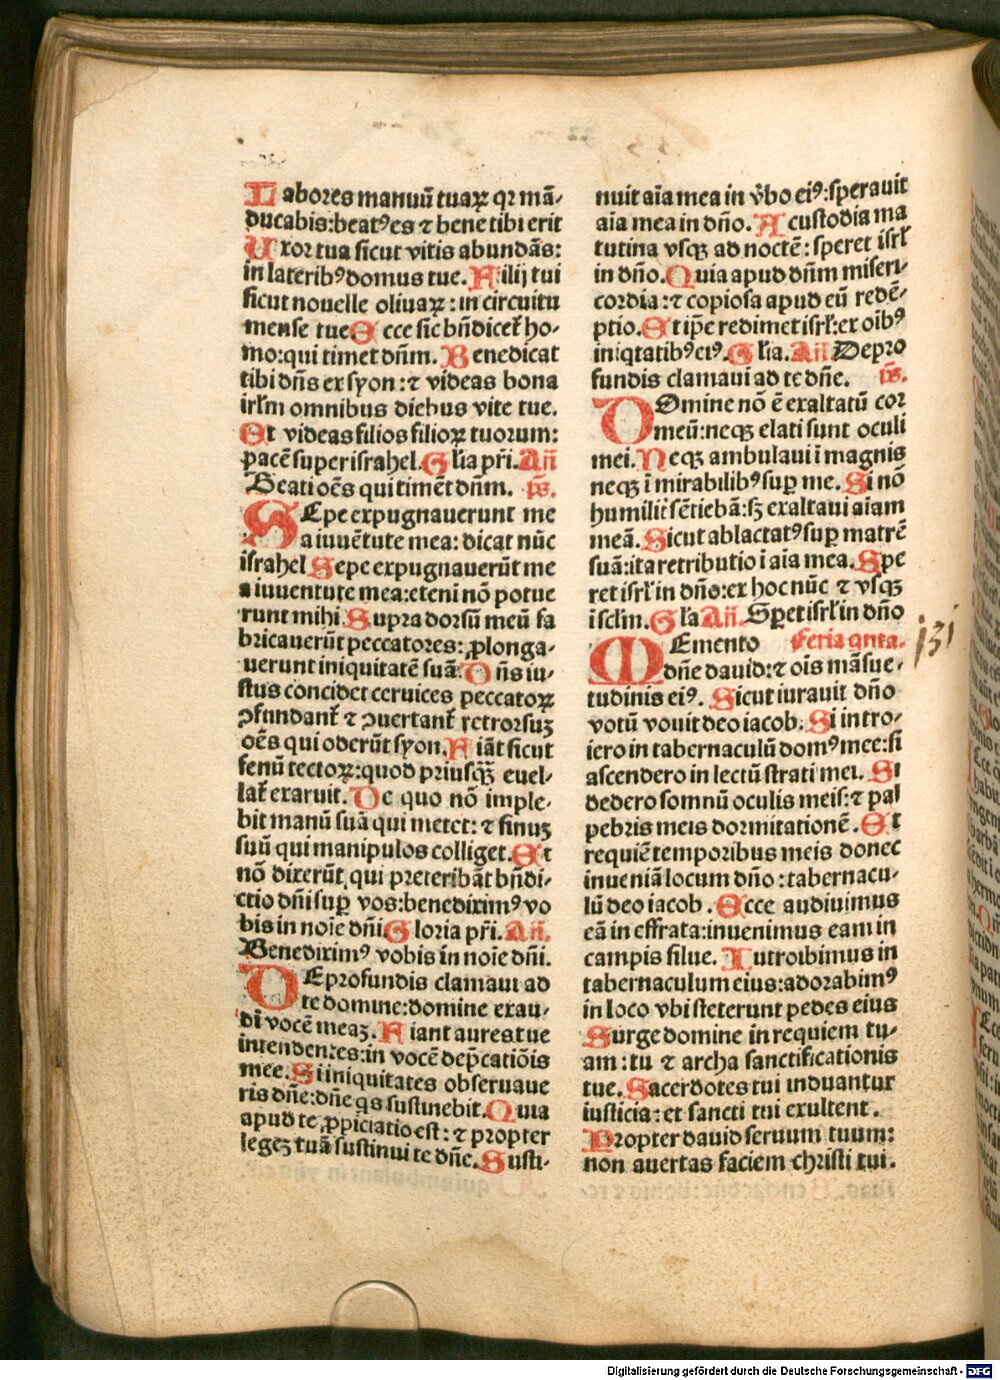 Labores manuū tuaꝝ qr mā-
ducabis:beatꝰes ⁊ bene tibi erit
Uxor tua sicut vitis abundās:
in lateribꝰdomus tue. Filij tui
sicut nouelle oliuaꝝ:in circuitu
mense tue Ecce sic bn̄dicet̄ ho-
mo:qui timet dn̄m. Benedicat
tibi dn̄s ex syon:⁊ videas bona
irl̄m omnibus diebus vite tue.
Et videas filios filioꝝ tuorum:
pacē super israhel. Gl̄ia pr̄i. An̄
Beati oēs qui timēt dn̄m. ps̄.
SEpe expugnauerunt me
a iuuētute mea: dicat nūc
israhel Sepe expugnauerūt me
a iuuentute mea:eteni nō potue
runt mihi. Supra dorsū meū fa
bricauerūt peccatores: ꝓlonga-
uerunt iniquitatē suā. Dn̄s iu-
stus concidet ceruices peccatoꝝ
ꝯfundant̄ ⁊ ꝯuertant̄ retrorsuꝫ
oēs qui oderūt syon. Fiāt sicut
fenū tectoꝝ:quod priusqȝ̄ euel-
lat̄ exaruit. De quo nō imple-
bit manū suā qui metet: ⁊ sinuꝫ
suū qui manipulos colliget. Et
nō dixerūt qui preteribāt bn̄di-
ctio dn̄i suꝑ vos:benediximꝰ vo
bis in noīe dn̄i Gloria pr̄i. An̄.
Benediximꝰ vobis in noīe dn̄i.
DEprofundis clamaui ad
te domine:domine exau-
di vocē meaꝫ. Fiant aures tue
intendentes:in vocē dep̄catiōis
mee. Si iniquitates obseruaue
ris dn̄e:dn̄e qs sustinebit. Quia
apud te ꝓpiciatio est: ⁊ propter
legeꝫ tuā sustinui te dn̄e. Susti-
nuit aīa mea in v̄bo eiꝰ:sperauit
aīa mea in dn̄o. A custodia ma
tutina vsqȝ ad noctē: speret isrl̄
in dn̄o. Quia apud dn̄m miseri-
cordia:⁊ copiosa apud eū redē-
ptio. Et ip̄e redimet isrl̄:ex oībꝰ
iniqtatibꝰ eiꝰ. Gl̄ia. An̄ De pro
fundis clamaui ad te dn̄e. ps̄.
DOmine nō ē exaltatū cor
meū:neqȝ elati sunt oculi
mei. Neqȝ ambulaui ī magnis
neqȝ ī mirabilibꝰ suꝑ me. Si nō
humilit̄ sētiebā:sȝ exaltaui aīam
meā. Sicut ablactatꝰ suꝑ matrē
suā:ita retributio ī aīa mea. Spe
ret isrl̄ in dn̄o:ex hoc nūc ⁊ vsqȝ
ī sclm̄. Gl̄a An̄. Sꝑet isrl̄ in dn̄o
MEmento Feria qnta.
dn̄e dauid:⁊ oīs māsue-
tudinis eiꝰ. Sicut iurauit dn̄o
votū vouit deo iacob. Si intro-
iero in tabernaculū domꝰ mee:si
ascendero in lectū strati mei. Si
dedero somnū oculis meis:⁊ pal
pebris meis dormitationē. Et
requiē temporibus meis donec
inueniā locum dn̄o:tabernacu-
lū deo iacob. Ecce audiuimus
eā in effrata:inuenimus eam in
campis silue. Introibimus in
tabernaculum eius:adorabimꝰ
in loco vbi steterunt pedes eius
Surge domine in requiem tu-
am:tu ⁊ archa sanctificationis
tue. Sacerdotes tui induantur
iusticia:et sancti tui exultent.
Propter dauid seruum tuum:
non auertas faciem christi tui.
131
Digitalisierung gefördert durch die Deutsche Forschungsgemeinschaft - DFG